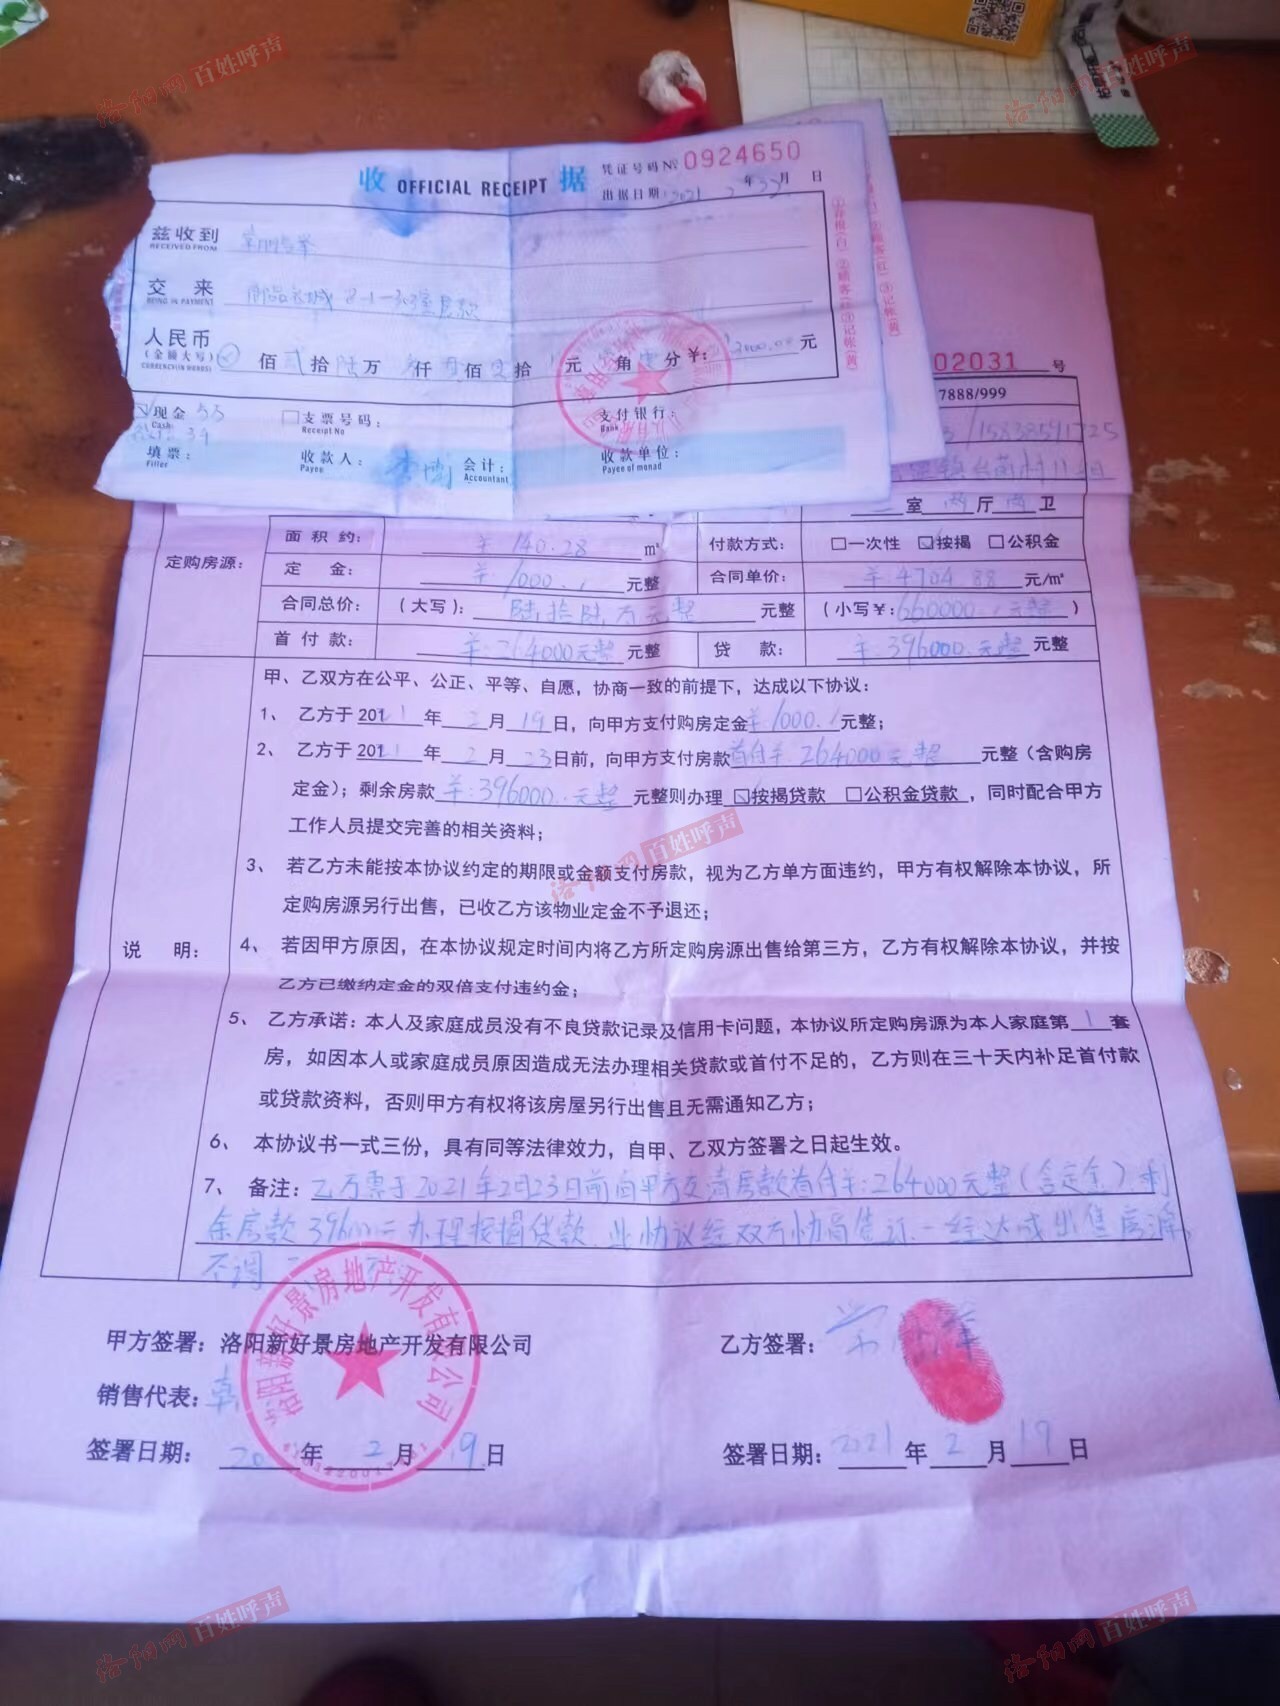 洛阳网 百姓呼声
洛阳网 百姓呼声
收 OFFICIAL RECEIPT 据
凭证号码 № 0924650
出据日期：2021 年 月 日
兹收到
RECEIVED FROM
交来 8-1-303室房款
BEING IN PAYMENT
人民币
(金额大写) 佰贰拾陆万 仟 佰 拾 元 角 分 ¥： 元
现金 支票号码： 支付银行：
Cash Receipt No Bank
填票： 收款人： 会计： 收款单位：
Filler Payee Accountant Payee of monad
①存根(白) ②顾客(红) ③记帐(黄)
02031 号
7888/999
15838591725
室 两 厅 两 卫
定购房源：
面积约： ¥ 140.28 ㎡ 付款方式： □一次性 ☑按揭 □公积金
定 金： ¥:1000. 元整 合同单价： ¥:4704.88 元/㎡
合同总价： (大写)： 陆拾陆万元整 元整 (小写¥：660000.元整)
首付款： ¥:264000元整 元整 贷 款： ¥:396000.元整 元整
说 明：
甲、乙双方在公平、公正、平等、自愿，协商一致的前提下，达成以下协议：
1、 乙方于 2021 年 2 月 19 日，向甲方支付购房定金¥1000. 元整；
2、 乙方于 2021 年 2 月 23 日前，向甲方支付房款首付¥:264000元整 元整（含购房
定金）；剩余房款 ¥:396000.元整 元整则办理 ☑按揭贷款 □公积金贷款，同时配合甲方
工作人员提交完善的相关资料；
3、 若乙方未能按本协议约定的期限或金额支付房款，视为乙方单方面违约，甲方有权解除本协议，所
定购房源另行出售，已收乙方该物业定金不予退还；
洛阳网 百姓呼声
4、 若因甲方原因，在本协议规定时间内将乙方所定购房源出售给第三方，乙方有权解除本协议，并按
乙方已缴纳定金的双倍支付违约金；
5、 乙方承诺：本人及家庭成员没有不良贷款记录及信用卡问题，本协议所定购房源为本人家庭第 1 套
房，如因本人或家庭成员原因造成无法办理相关贷款或首付不足的，乙方则在三十天内补足首付款
或贷款资料，否则甲方有权将该房屋另行出售且无需通知乙方；
6、 本协议书一式三份，具有同等法律效力，自甲、乙双方签署之日起生效。
7、 备注：乙方需于2021年2月23日前向甲方交清房款首付¥:264000元整(含定金).剩
余房款 办理按揭贷款 此协议经双方协商签订.一经达成出售房源
不调
甲方签署：洛阳新好景房地产开发有限公司 乙方签署：
洛阳新好景房地产开发有限公司
销售代表：
签署日期： 年 2 月 19 日 签署日期：2021 年 2 月 19 日
洛阳网 百姓呼声
洛阳网 百姓呼声